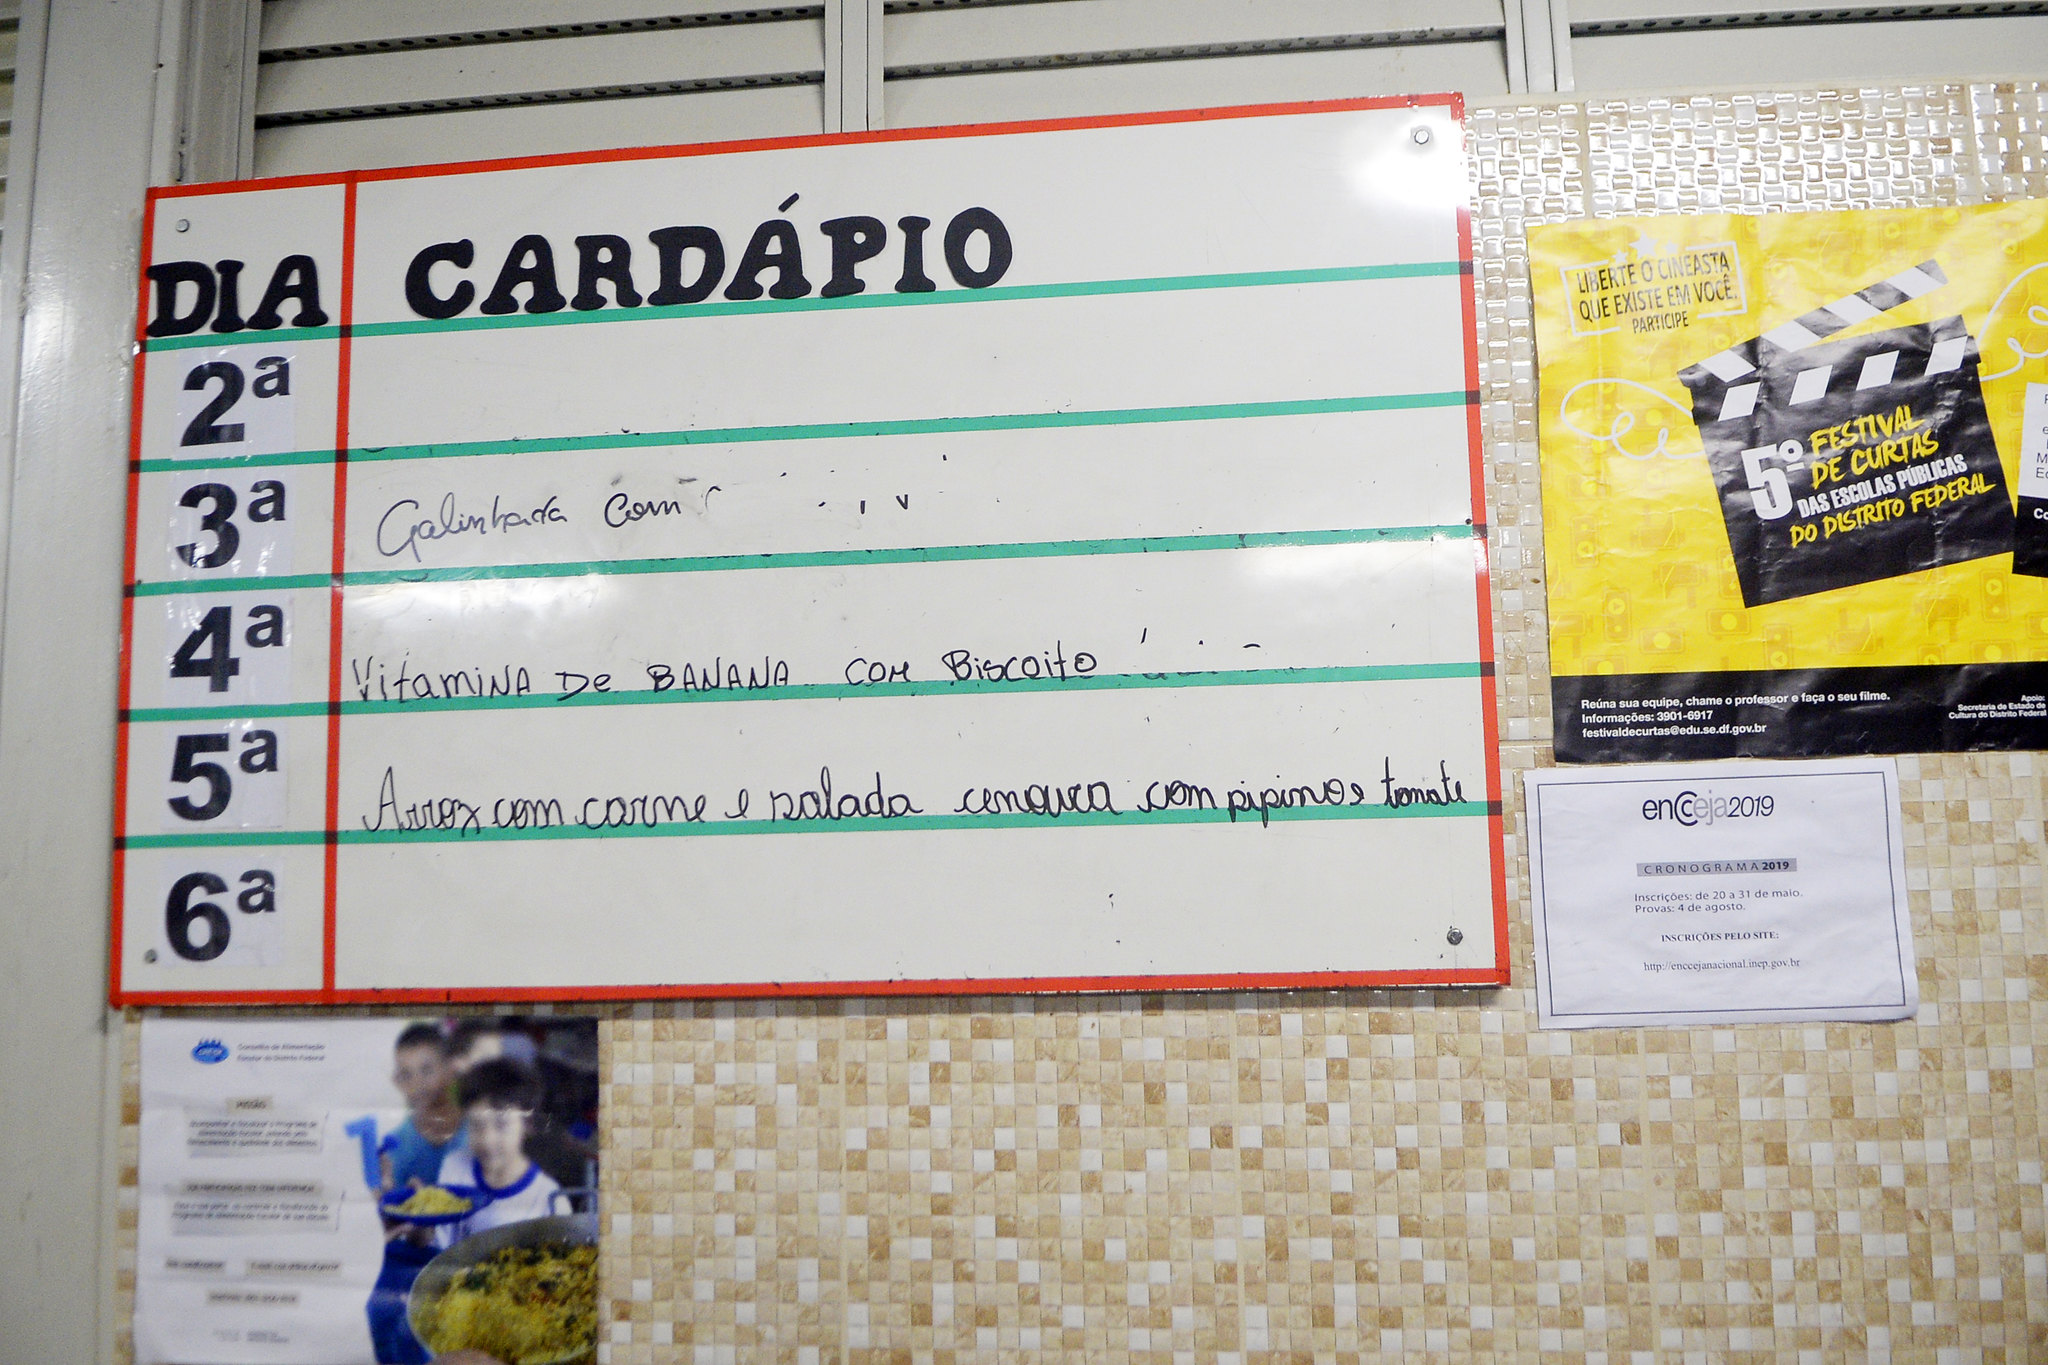 DIA CARDÁPIO
2ª
3ª Galinhada com
4ª Vitamina de BANANA com Biscoito
5ª Arroz com carne e salada cenoura com pipino e tomate
6ª
LIBERTE O CINEASTA
QUE EXISTE EM VOCÊ.
PARTICIPE
5º FESTIVAL
DE CURTAS
DAS ESCOLAS PÚBLICAS
DO DISTRITO FEDERAL
Reúna sua equipe, chame o professor e faça o seu filme.
Informações: 3901-6917
festivaldecurtas@edu.se.df.gov.br
Apoio:
Secretaria de Estado de
Cultura do Distrito Federal
encceja2019
CRONOGRAMA 2019
Inscrições: de 20 a 31 de maio.
Provas: 4 de agosto.
INSCRIÇÕES PELO SITE:
http://enccejanacional.inep.gov.br
Conselho de Alimentação
Escolar do Distrito Federal